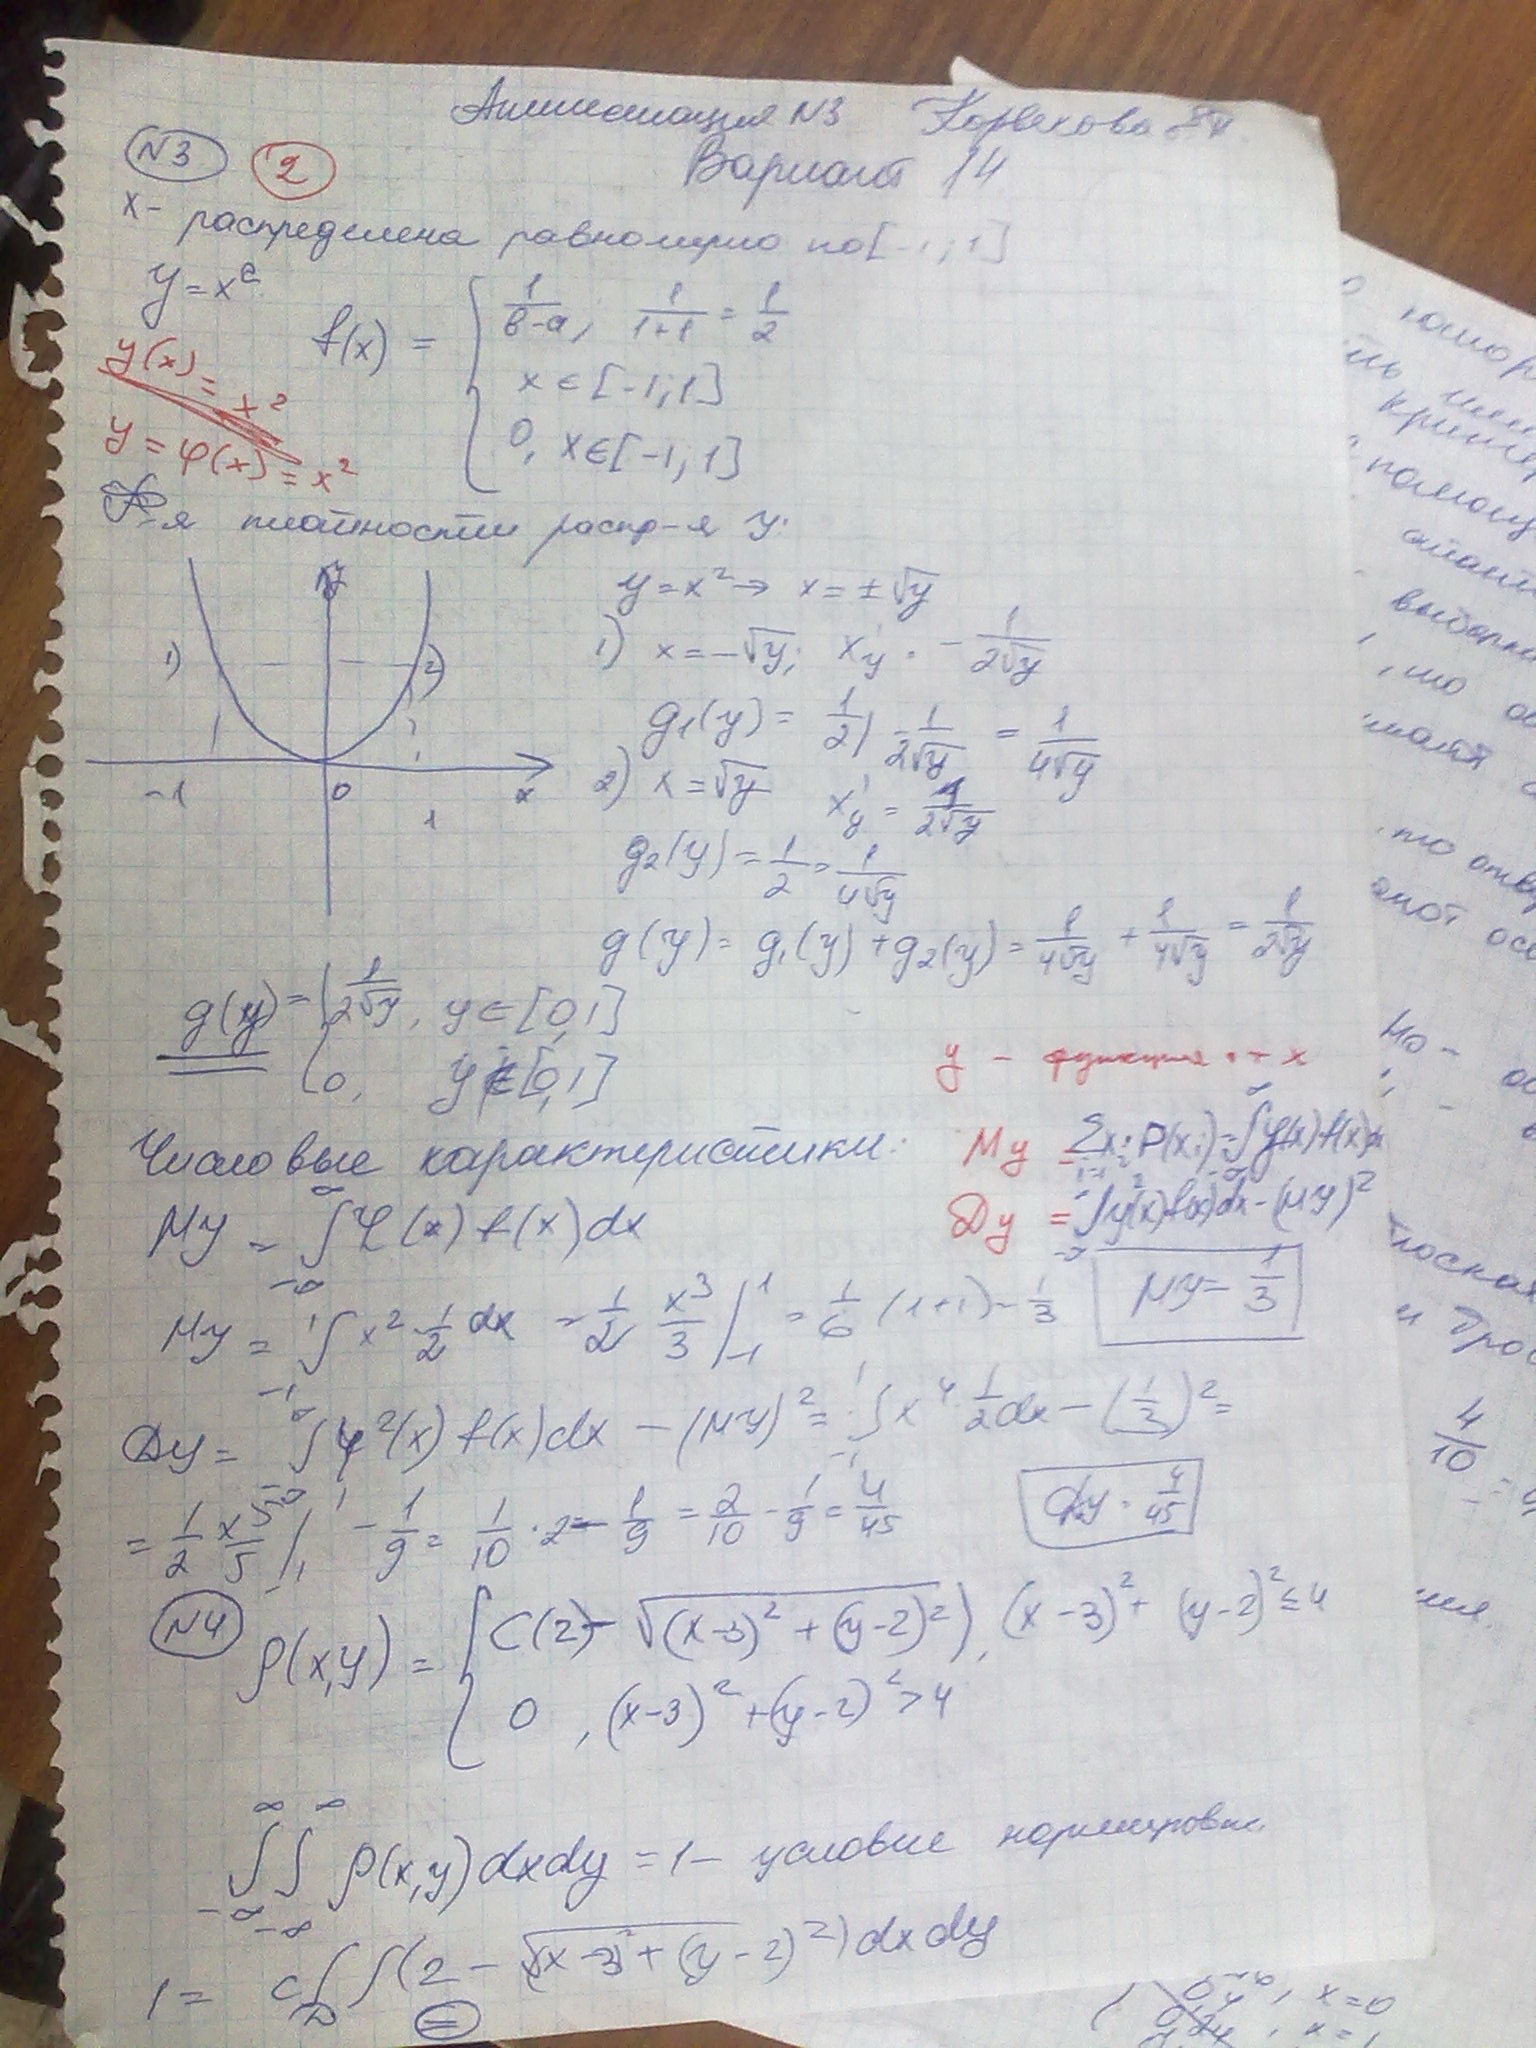 Аттестация N3
Вариант 14
N3 2
x - распределена равномерно по [-1; 1]
y = x²
f(x) = { 1/(в-а), 1/(1+1) = 1/2
x ∈ [-1; 1]
0, x ∈ [-1; 1]
y(x) = x²
y = φ(x) = x²
Ф-я плотности распр-я y.
y = x² → x = ± √y
1) x = -√y; x'y = -1/(2√y)
1) 2)
g1(y) = 1/2 |-1/(2√y) = 1/(4√y)
2) x = √y x'y = 1/(2√y)
-1 0 1 x y
g2(y) = 1/2 = 1/(4√y)
g(y) = g1(y) + g2(y) = 1/(4√y) + 1/(4√y) = 1/(2√y)
g(y) = { 1/(2√y), y ∈ [0,1]
0, y ∉ [0,1]
y - функция от x
Числовые характеристики:
My = Σ xi P(xi) = ∫ y(x) f(x) dx
Dy = ∫ y²(x) f(x) dx - (My)²
My = ∫_{-∞}^{∞} φ(x) f(x) dx
My = ∫_{-1}^{1} x² 1/2 dx = 1/2 x³/3 |_{-1}^{1} = 1/6 (1+1) = 1/3 My = 1/3
Dy = ∫_{-∞}^{∞} φ²(x) f(x) dx - (My)² = ∫_{-1}^{1} x⁴ 1/2 dx - (1/3)² =
= 1/2 x⁵/5 |_{-1}^{1} - 1/9 = 1/10 · 2 - 1/9 = 2/10 - 1/9 = 4/45 Dy = 4/45
N4 ρ(x,y) = { C(2 - √((x-3)² + (y-2)²)), (x-3)² + (y-2)² ≤ 4
0, (x-3)² + (y-2)² > 4
∫_{-∞}^{∞} ∫_{-∞}^{∞} ρ(x,y) dx dy = 1 - условие нормировки
1 = C ∫∫_D (2 - √(x-3)² + (y-2)²) dx dy
=
помощ
выборк
, то
что отве
4/10 =
, x=0
, x=1